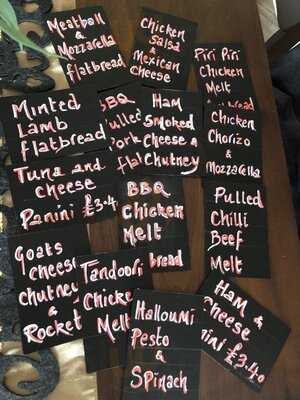 Meatball
&
Mozzarella
flatbread
Chicken
Salsa
&
Mexican
cheese
Piri Piri
Chicken
Melt
bread
Minted
Lamb
flatbread
BBQ
Pulled
Pork
flat
Ham
Smoked
Cheese &
Chutney
Chicken
Chorizo
&
Mozzarella
Tuna and
cheese
Panini £3.40
BBQ
Chicken
Melt
bread
Pulled
Chilli
Beef
Melt
Goats
cheese
Chutney
&
Rocket
Tandoori
Chicken
Melt
Halloumi
Pesto
&
Spinach
Ham
&
Cheese
ini £3.40